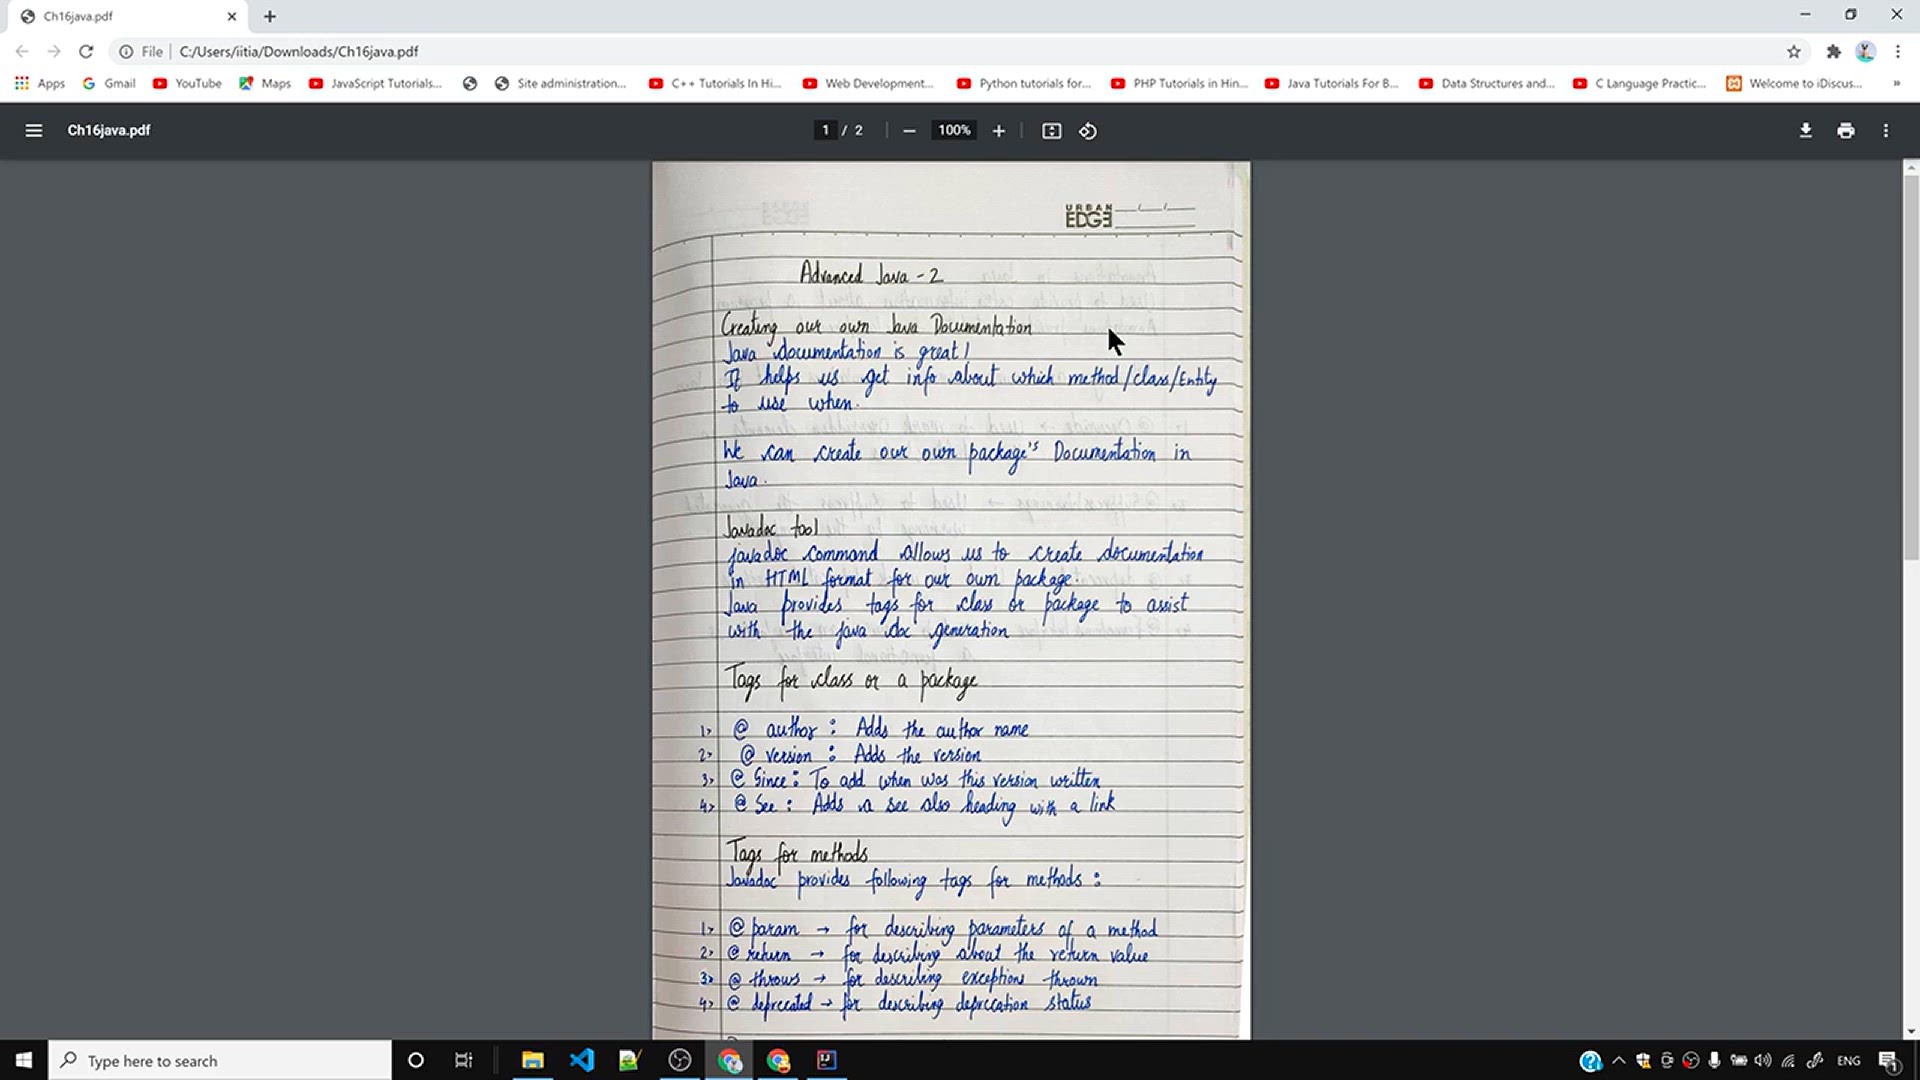 Ch16java.pdf
File C:/Users/iitia/Downloads/Ch16java.pdf
Apps Gmail YouTube Maps JavaScript Tutorials... Site administration... C++ Tutorials In Hi... Web Development... Python tutorials for... PHP Tutorials in Hin... Java Tutorials For B... Data Structures and... C Language Practic... Welcome to iDiscus... »
Ch16java.pdf 1 / 2 100%
URBAN
EDGE
Advanced Java - 2
Creating our own Java Documentation
Java documentation is great!
It helps us get info about which method/class/Entity
to use when.
We can create our own package's Documentation in
Java.
Javadoc tool
javadoc command allows us to create documentation
in HTML format for our own package.
Java provides tags for class or package to assist
with the java doc generation
Tags for class or a package
1> @ author : Adds the author name
2> @ version : Adds the version
3> @ Since : To add when was this version written
4> @ See : Adds a see also heading with a link
Tags for methods
Javadoc provides following tags for methods :
1> @ param → for describing parameters of a method
2> @ return → for describing about the return value
3> @ throws → for describing exceptions thrown
4> @ deprecated → for describing deprecation status
Type here to search
ENG